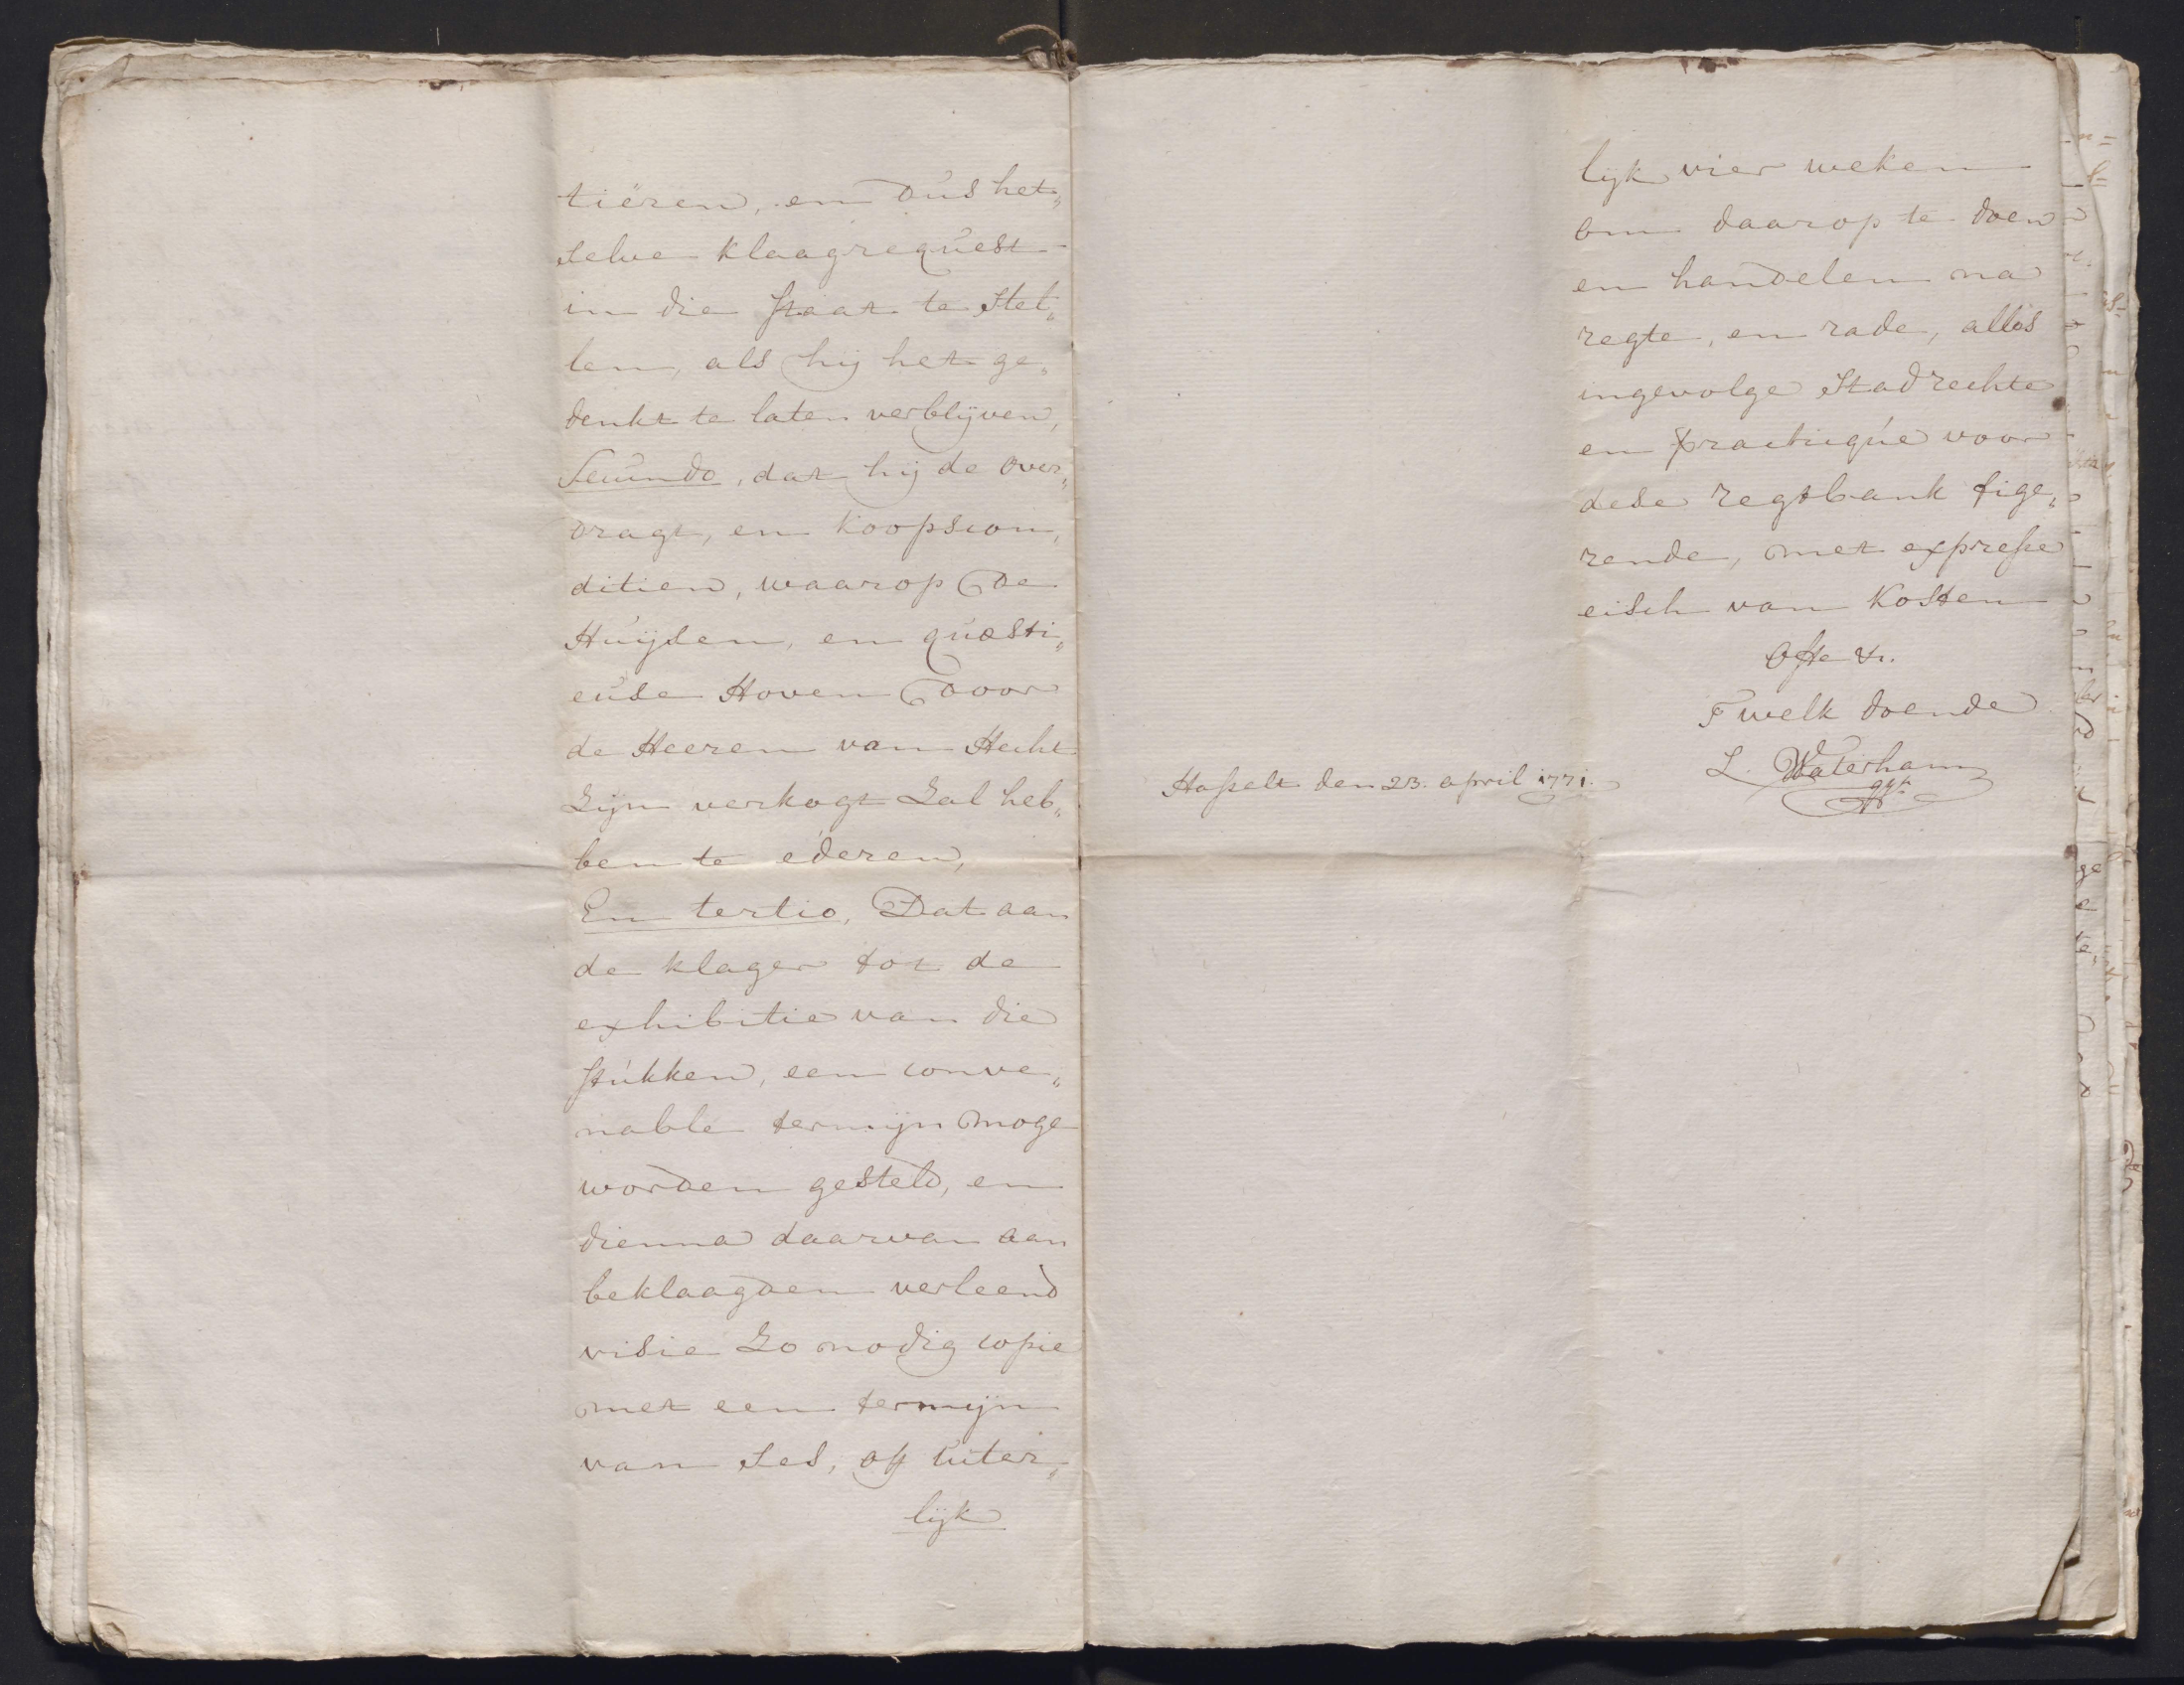 tiëren, en dus het„
selve klaagrequest
in die staat te stel„
len, als hij het ge„
denkt te laten verblijven,
Secundo, dat hij de over„
dragt, en koopscon„
ditien, waarop de
Huijsen, en quæsti„
euse Hoven door
de Heeren van Hecht
zijn verkogt zal heb„
ben te ederen,
En tertio, Dat aan
de klager tot de
exhibitie van die
stukken, een conve„
nable termijn moge
worden gesteld, en
dienna daarvan aan
beklaagden verleend
visie zo nodig copie
met een termijn
van ses, of uiter„
lijk
lijk vier weken
om daarop te doen
en handelen na
regte, en rade, alles
ingevolge Stadrechte
en practicque voor
dese regtbank fige„
rende, met expresse
eisch van kosten
Ofte &c.
T welk doende
L. Waterham
Hasselt den 23. april 1771.